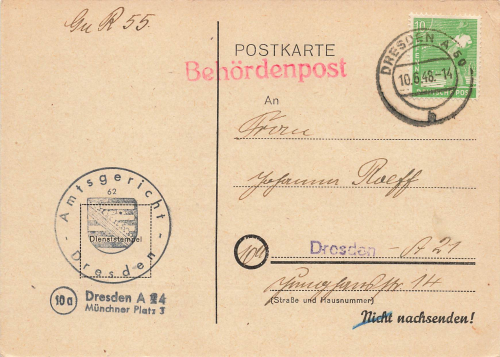 Gn R 55.
POSTKARTE
Behördenpost
10
DRESDEN A 50
10.6.48.-14
h
DEUTSCHE POST
An
Frau
Johanna Roeff
(10a) Dresden - A 21
Junghansstr 14
(Straße und Hausnummer)
Nicht nachsenden!
Amtsgericht
62
Dienststempel
Dresden
10a Dresden A 24
Münchner Platz 3